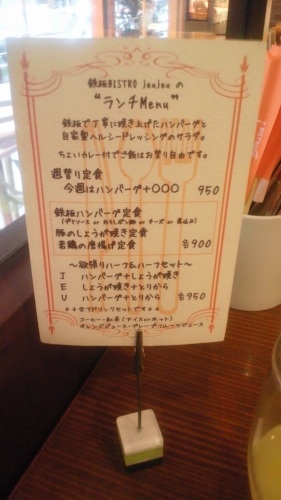 鉄板BISTRO JeuJeu の
"ランチMenu"
鉄板で丁寧に焼き上げたハンバーグと
自家製ヘルシードレッシングのサラダ。
ちょいカレー付でご飯はお替り自由です。
週替り定食
今週はハンバーグ+○○○ 950
鉄板ハンバーグ定食
(デミソース or おろしポン酢 or チーズ or 煮込み)
豚のしょうが焼き定食
若鶏の唐揚げ定食 各900
～欲張りハーフ&ハーフセット～
J ハンバーグ+しょうが焼き
E しょうが焼き+とりから
U ハンバーグ+とりから 各950
全てドリンクセットです
コーヒー・紅茶(アイスorホット)
オレンジジュース・グレープフルーツジュース